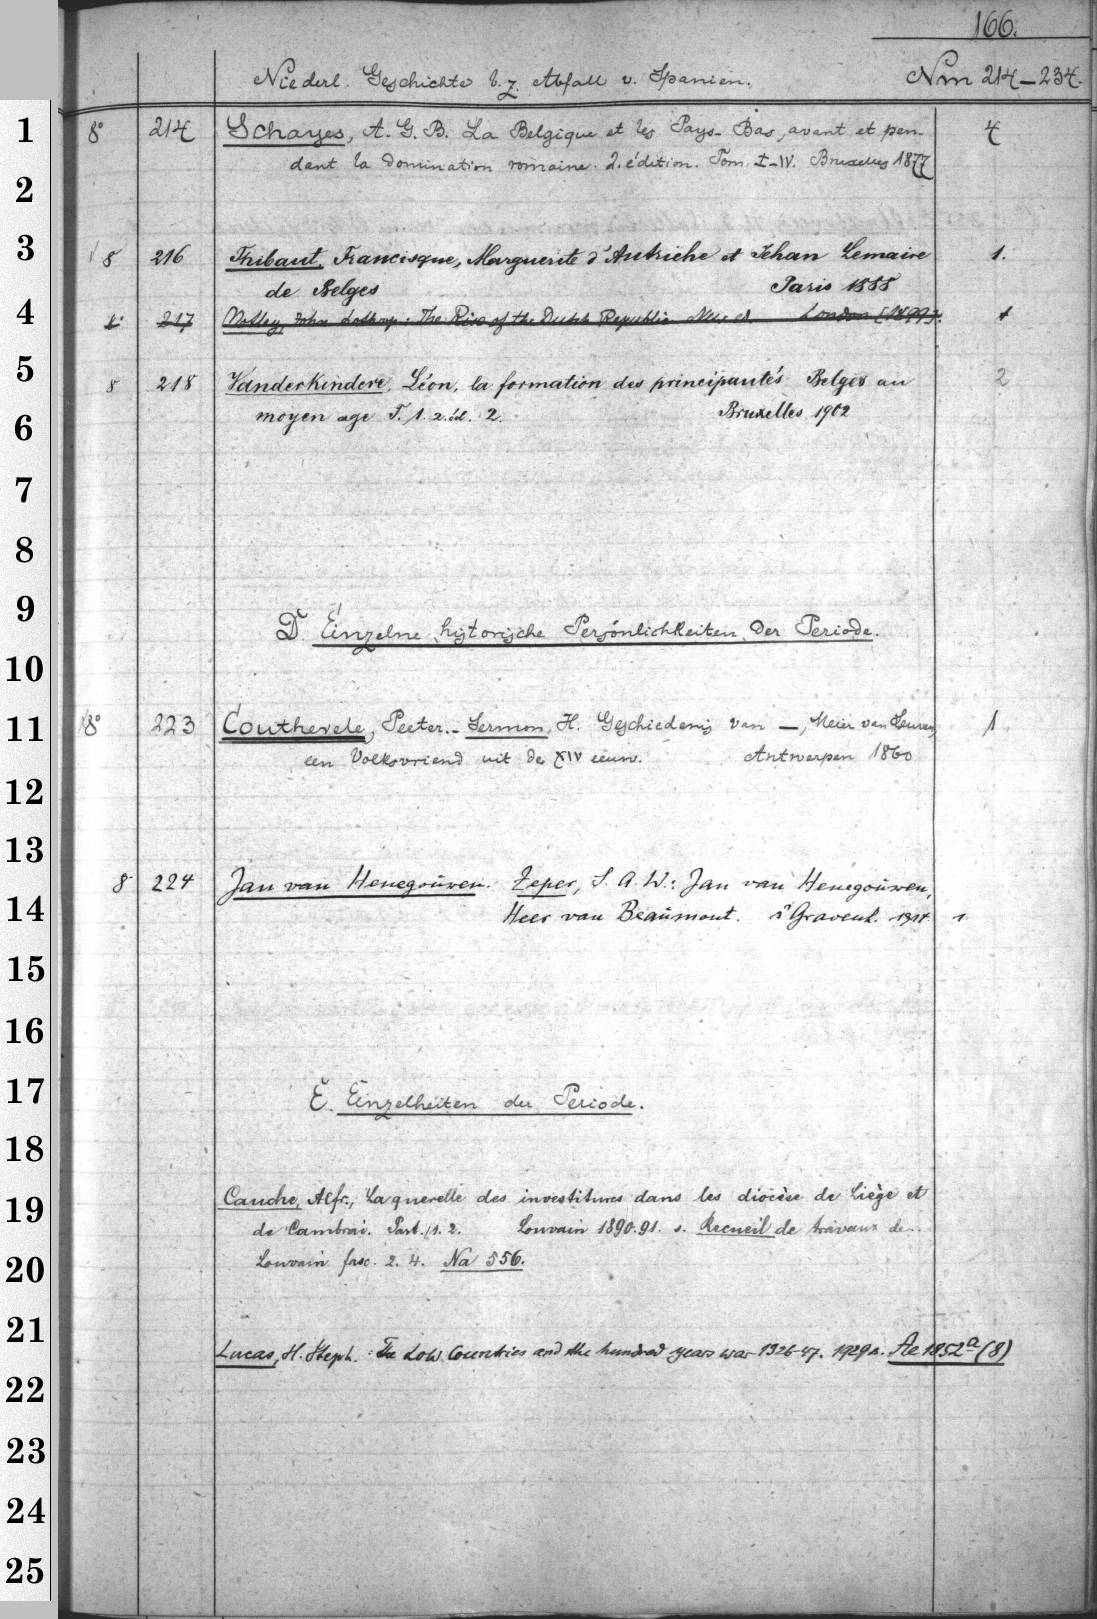 166.
Niederl. Geschichte b. z. Abfall v. Spanien. Nm 214-234.
8° 214 Schayes, A. G. B. La Belgique et les Pays-Bas, avant et pen- 4
dant la domination romaine. 2. édition. Tom. I-IV. Bruxelles 1877
8 216 Thibaut, Francisque, Marguerite d'Autriche et Jehan Lemaire 1.
de Belges Paris 1888
217 Motley, John Lothrop: The Rise of the Dutch Republic. New ed. London [1899]. 1
8 218 Vanderkindere, Léon, la formation des principautés Belges au 2
moyen age T. 1. 2. éd. 2. Bruxelles 1902
D. Einzelne historische Persönlichkeiten der Periode.
8° 223 Coutherele, Peeter.- Sermon, H. Geschiedenis van —, Meier van Leuven, 1
een Volksvriend uit de XIV eeuw. Antwerpen 1860
8 224 Jan van Henegouwen. Zeper, S. A. W.: Jan van Henegouwen,
Heer van Beaumont. s'Gravenh. 1914. 1.
E. Einzelheiten der Periode.
Cauche, Alfr., La querelle des investitures dans les diocèse de Liège et
de Cambrai. Part. 1. 2. Louvain 1890.91. s. Recueil de travaux de..
Louvain fasc. 2. 4. Na 556.
Lucas, H. Steph.: The Low Countries and the hundred years war 1326-47. 1929. Ae 1852a (8)